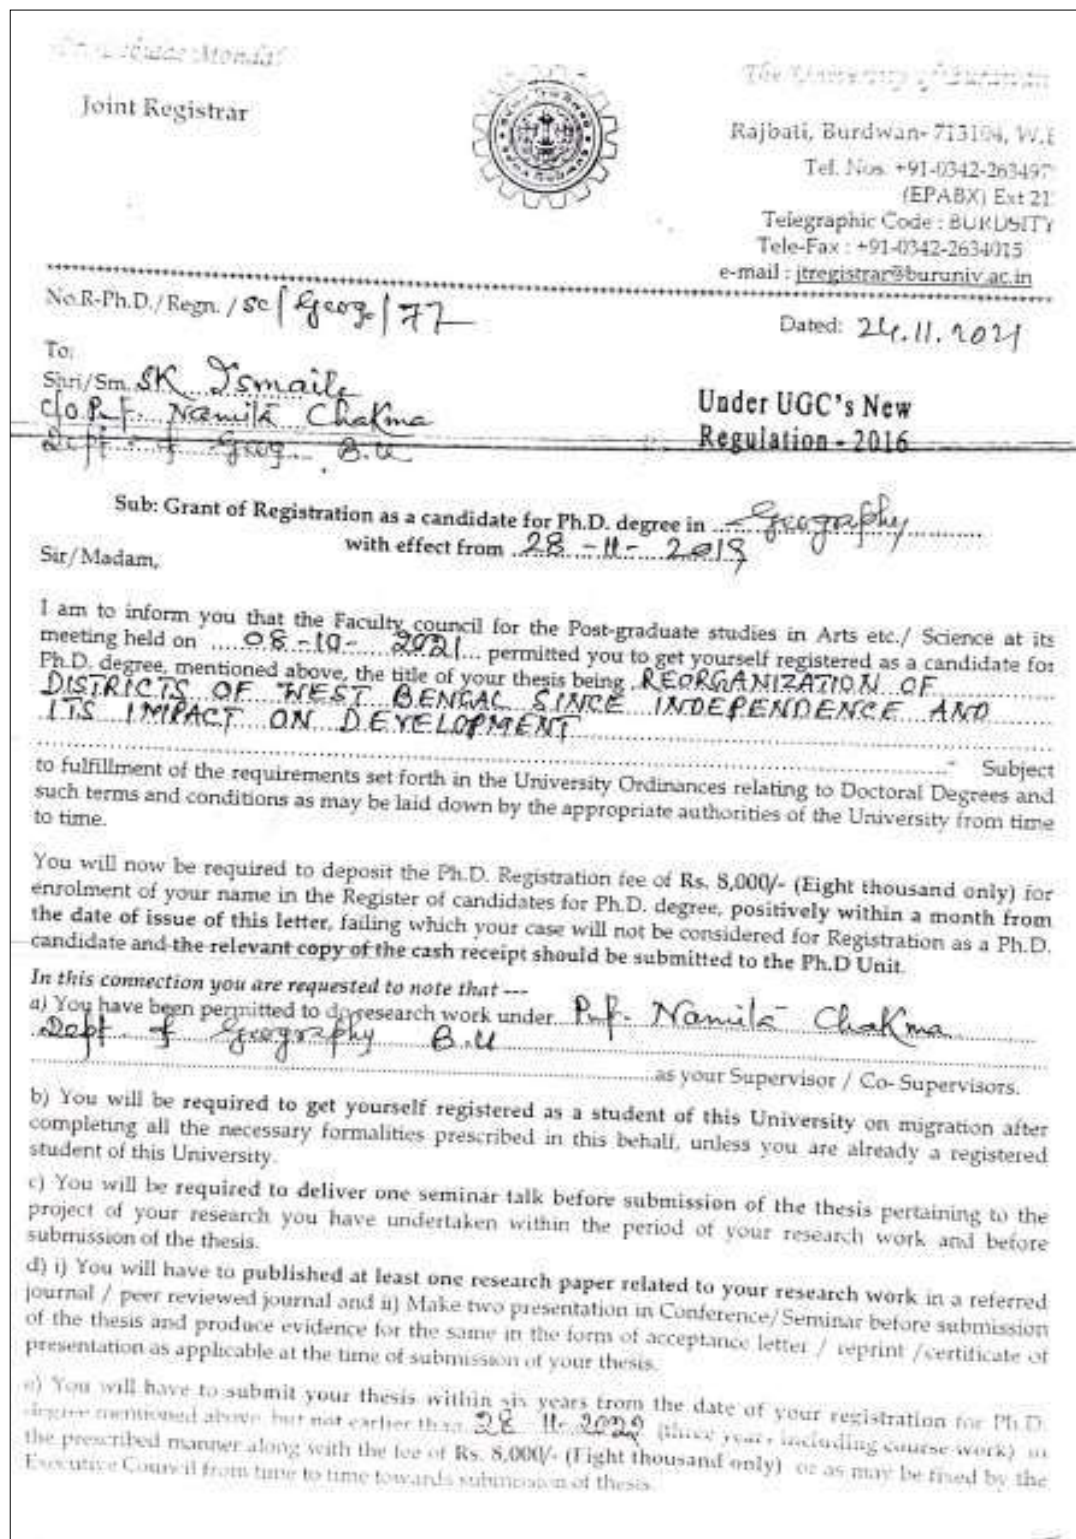 Mondal
Joint Registrar
The University of Burdwan
Rajbati, Burdwan- 713104, W.B
Tel. Nos. +91-0342-263497
(EPABX) Ext 21
Telegraphic Code : BURDSITY
Tele-Fax : +91-0342-2634015
e-mail : jtregistrar@buruniv.ac.in
No.R-Ph.D./Regn. / SC / Geog / 77
Dated: 24.11.2021
To:
Shri/Sm. SK Ismaile
C/O Prof. Namita Chakma
Dept. of Geog. B.U
Under UGC's New
Regulation - 2016
Sub: Grant of Registration as a candidate for Ph.D. degree in Geography
with effect from 28 - 11 - 2019
Sir/Madam,
I am to inform you that the Faculty council for the Post-graduate studies in Arts etc./ Science at its
meeting held on 08 - 10 - 2021 permitted you to get yourself registered as a candidate for
Ph.D. degree, mentioned above, the title of your thesis being REORGANIZATION OF
DISTRICTS OF WEST BENGAL SINCE INDEPENDENCE AND
ITS IMPACT ON DEVELOPMENT
" Subject
to fulfillment of the requirements set forth in the University Ordinances relating to Doctoral Degrees and
such terms and conditions as may be laid down by the appropriate authorities of the University from time
to time.
You will now be required to deposit the Ph.D. Registration fee of Rs. 8,000/- (Eight thousand only) for
enrolment of your name in the Register of candidates for Ph.D. degree, positively within a month from
the date of issue of this letter, failing which your case will not be considered for Registration as a Ph.D.
candidate and the relevant copy of the cash receipt should be submitted to the Ph.D Unit.
In this connection you are requested to note that ---
a) You have been permitted to do research work under Prof. Namita Chakma
Dept of Geography B.U
as your Supervisor / Co- Supervisors.
b) You will be required to get yourself registered as a student of this University on migration after
completing all the necessary formalities prescribed in this behalf, unless you are already a registered
student of this University.
c) You will be required to deliver one seminar talk before submission of the thesis pertaining to the
project of your research you have undertaken within the period of your research work and before
submission of the thesis.
d) i) You will have to published at least one research paper related to your research work in a referred
journal / peer reviewed journal and ii) Make two presentation in Conference/Seminar before submission
of the thesis and produce evidence for the same in the form of acceptance letter / reprint /certificate of
presentation as applicable at the time of submission of your thesis.
e) You will have to submit your thesis within six years from the date of your registration for Ph.D.
degree mentioned above but not earlier than 28 11- 2022 (three years including course work) in
the prescribed manner along with the fee of Rs. 8,000/- (Eight thousand only) or as may be fixed by the
Executive Council from time to time towards submission of thesis.